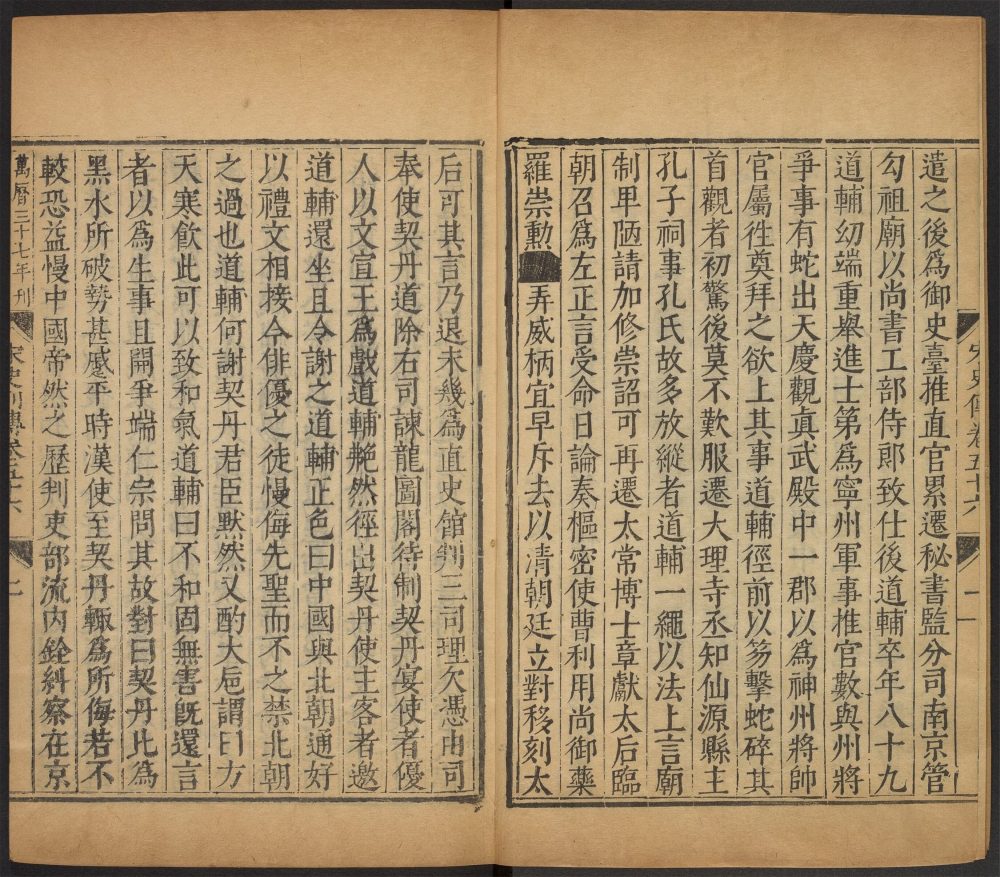 宋史傳卷五十六
二
遣之後爲御史臺推直官累遷秘書監分司南京管
勾祖廟以尚書工部侍郎致仕後道輔卒年八十九
道輔幼端重舉進士第爲寧州軍事推官數與州將
爭事有蛇出天慶觀眞武殿中一郡以爲神州將帥
官屬徃奠拜之欲上其事道輔徑前以笏擊蛇碎其
首觀者初驚後莫不歎服遷大理寺丞知仙源縣主
孔子祠事孔氏故多放縱者道輔一繩以法上言廟
制卑陋請加修崇詔可再遷太常博士章獻太后臨
朝召爲左正言受命日論奏樞密使曹利用尚御藥
羅崇勲弄威柄宜早斥去以清朝廷立對移刻太
后可其言乃退未幾爲直史館判三司理欠憑由司
奉使契丹道除右司諫龍圖閣待制契丹宴使者優
人以文宣王爲戲道輔艴然徑出契丹使主客者邀
道輔還坐且令謝之道輔正色曰中國與北朝通好
以禮文相接今俳優之徒慢侮先聖而不之禁北朝
之過也道輔何謝契丹君臣默然又酌大卮謂曰方
天寒飲此可以致和氣道輔曰不和固無害旣還言
者以爲生事且開爭端仁宗問其故對曰契丹比爲
黑水所破勢甚蹙平時漢使至契丹輒爲所侮若不
較恐益慢中國帝然之歷判吏部流内銓糾察在京
萬曆三十七年刊
宋史列傳卷五十六